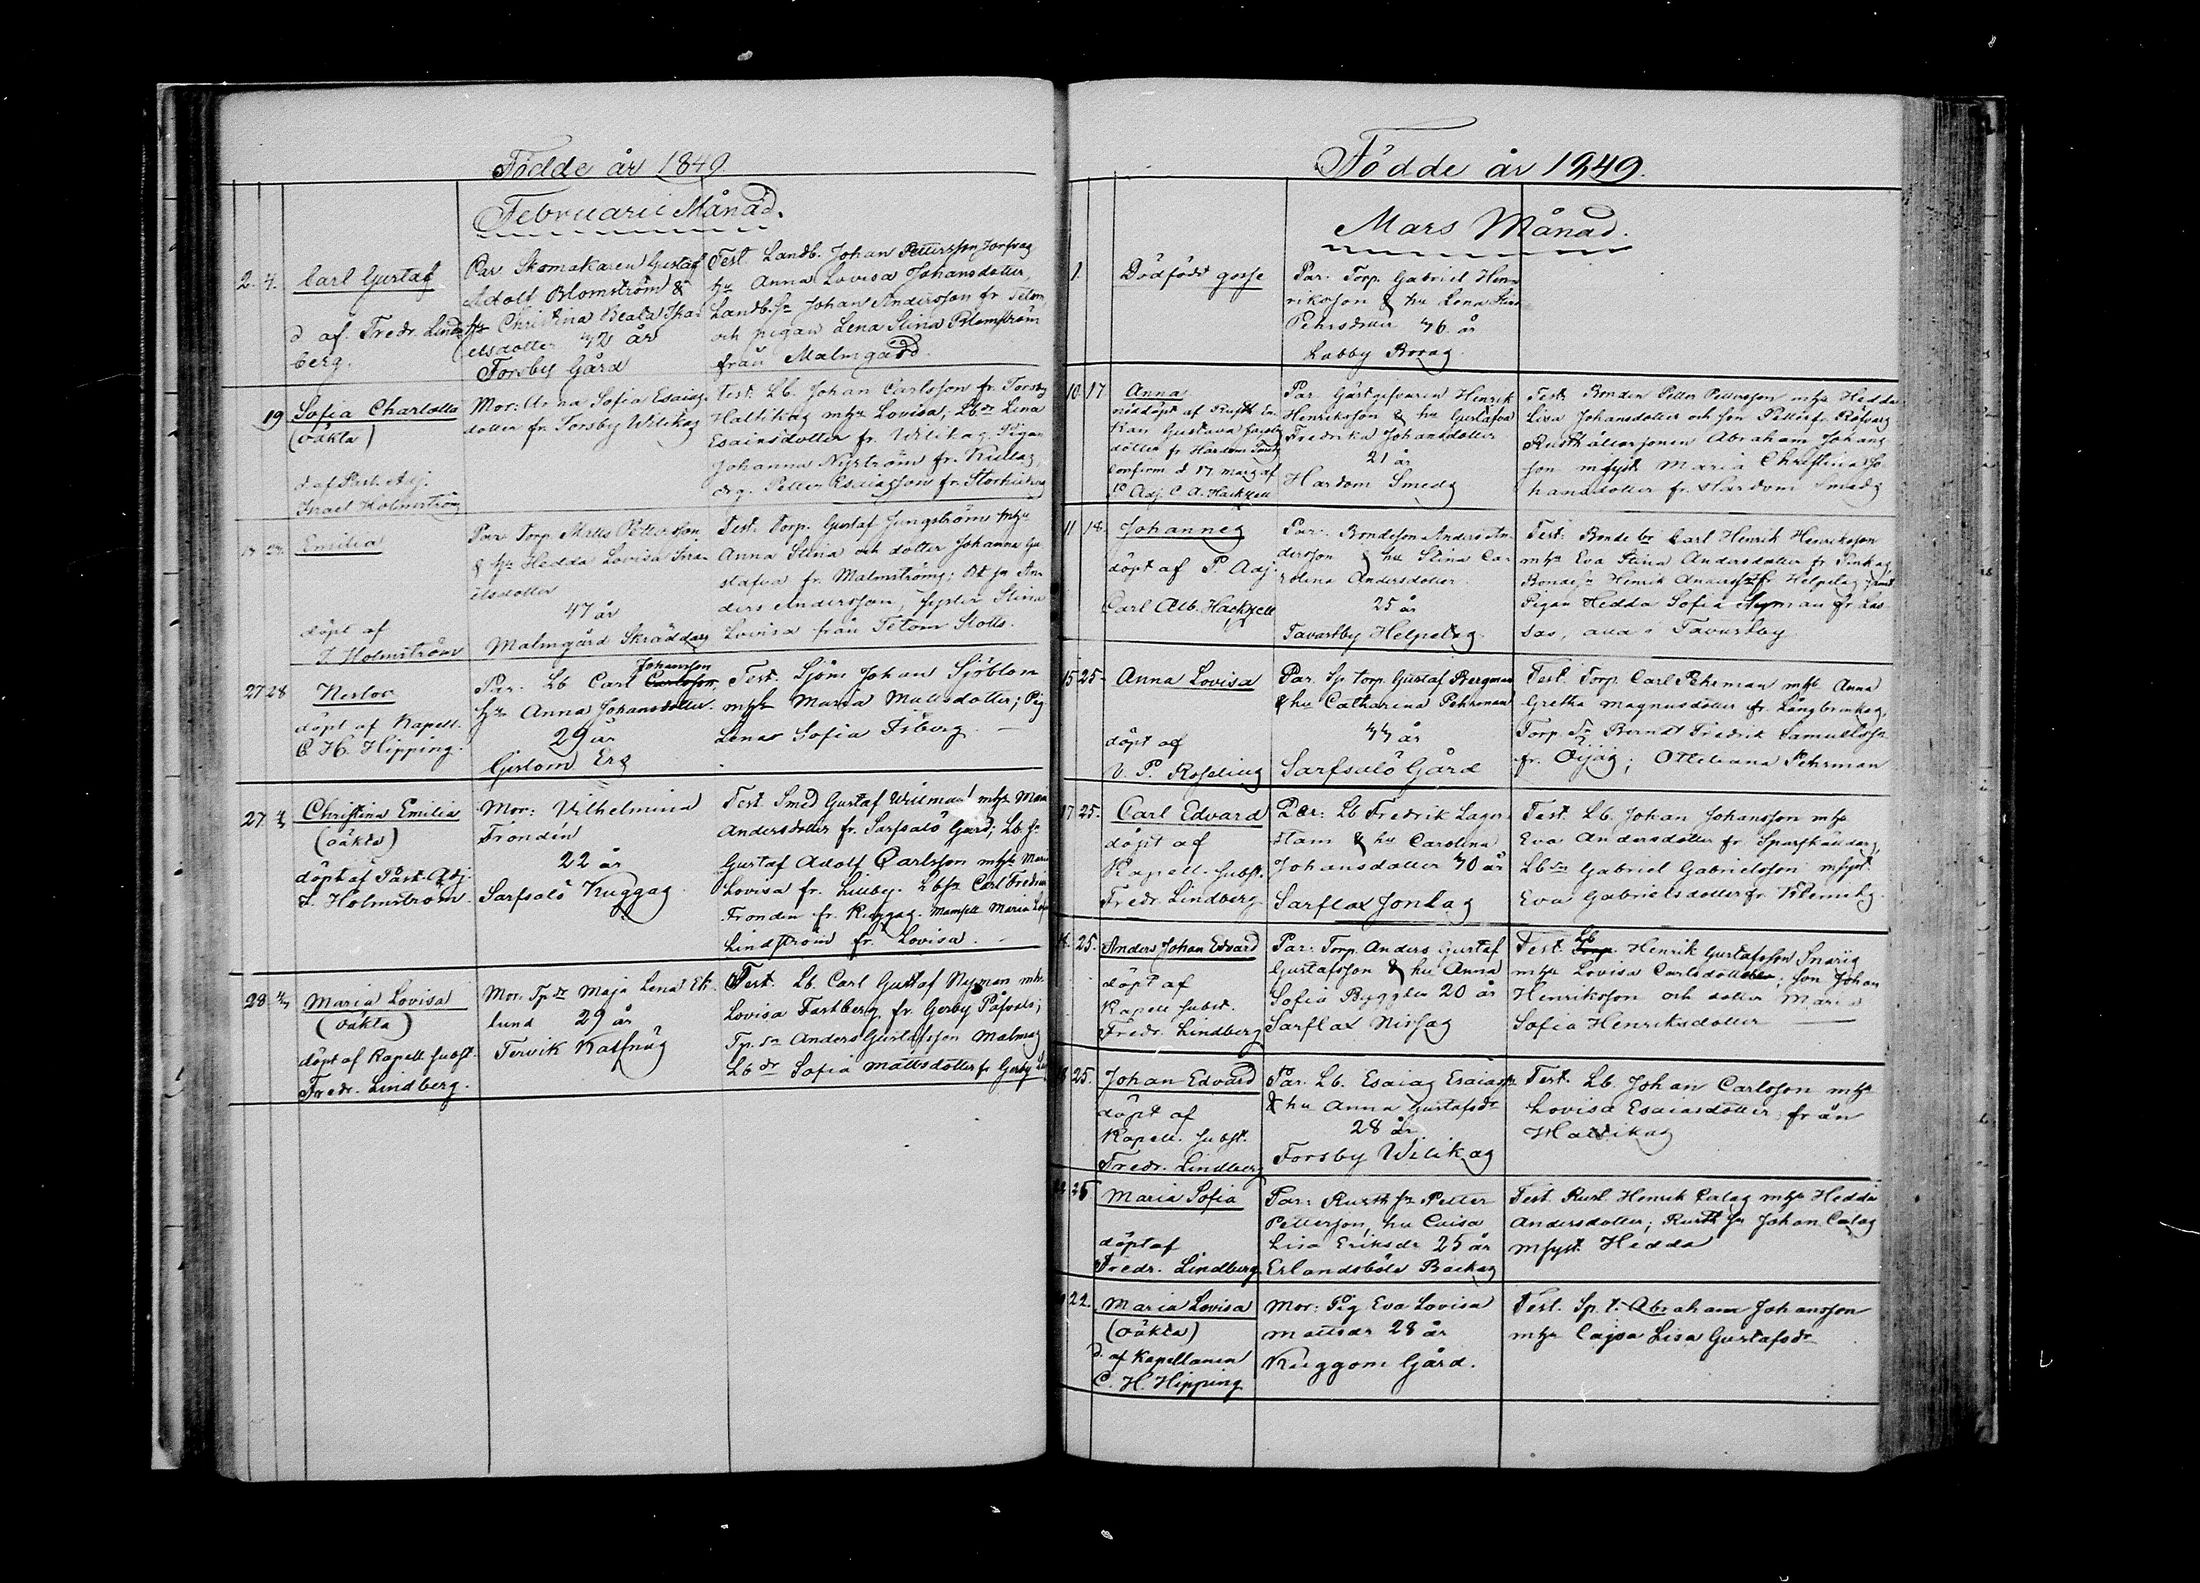 Födde år 1849.
Februarii Månad.
2. 4. Carl Gustaf
d af. Fredr. Lind
berg.
Par Skomakaren Gustaf
Adolf Blomström &
hu Christina Beata Isra-
elsdotter 42 år
Forsby Gård
Test Landb. Johan Pettersson
hu Anna Lovisa Johansdotter,
Landb. sn Johan Andersson fr Tetom
och pigan Lena Stina Blomström
från Malmgård.
19 Sofia Charlotta
(oäkta)
d af Past. Adj.
Israel Holmström
Mor: Anna Sofia Esaias-
dotter fr. Forsby Wilikas
Test: Lb. Johan Carlsson fr. Forsby
Hallikas mhu Lovisa; Lb dr Lena
Esaiasdotter fr. Wilikas. Pigan
Johanna Nyström fr.
drg. Petter Esaiasson fr.
24. Emilia
döpt af
I. Holmström
Par Torp Matts Pettersson
& hu Hedda Lovisa Isra-
elsdotter
47 år
Malmgård Skräddars
Test. Torp. Gustaf Jungström mhu
Anna Stina och dotter Johanna Gu
stafva fr. Malmströms; Bd sn An-
ders Andersson, syster Stina
Lovisa från Tetom Stolts.
27 28 Nestor
döpt af Kapell.
C. H. Hipping.
Par. Lb Carl Johansson
hu Anna Johansdotter.
29 år
Gislom Ers
Test. Sjöm Johan Sjöblom
mhu Maria Mattsdotter; Pig
Lena Sofia Åsberg. —
27. Christina Emilia
(oäkta)
döpt af Past. Adj.
I. Holmström.
Mor: Vilhelmina
Fronden
22 år
Sarfsalö Kuggas
Test. Smed Gustaf Willman mhu Maria
Andersdotter fr. Sarfsalö Gård; Lb sn
Gustaf Adolf Carlsson mhu Maria
Lovisa fr. Lillby. Lb sn Carl Fredrik
Fronden fr. Kuggas. Mamsell Maria
Lindström fr. Lovisa.
28 Maria Lovisa
(oäkta)
döpt af Kapell. subst.
Fredr. Lindberg.
Mor. Tp dr Maja Lena Ek
lund 29 år
Tervik
Test. Lb. Carl Gustaf Nyman mhu
Lovisa Fastberg fr. Gerby Påfvals;
Tp. sn Anders Gustafsson Malmas
Lb dr Sofia Mattsdotter fr Gerby
Födde år 1849.
Mars Månad.
1. Dödfödt gosse
Par. Torp. Gabriel Hen-
riksson & hu Lena Stina
Pehrsdotter 46 år
Labby
10 17 Anna
nöddöpt af
Gustava
dotter fr Hardom
Confirm d 17 Mars af
P. Adj. C. A. Hackzell
Par Gästgifvaren Henrik
Henriksson & hu Gustafva
Fredrika Johansdotter
21 år
Hardom Smeds
Test. Bonden Petter Pettersson mhu Hedda
Lisa Johansdotter och son Petter fr. Röfvars
Rusthållarsonen Abraham Johans
son msyst. Maria Christina Jo
hansdotter fr. Hardom Smeds
11 18. Johannes
döpt af P. Adj.
Carl Alb. Hackzell
Par. Bondeson Anders An-
dersson & hu Stina Ca-
rolina Andersdotter.
25 år
Tavastby Helpelas.
Test. Bonde br Carl Henrik Henriksson
mhu Eva Stina Andersdotter fr
Bondesn Henrik Andersson fr. Helpelas samt
Pigan Hedda Sofia Nyman fr Las
sas, alla i Tavastby
15 25 Anna Lovisa
döpt af
V. P. Roseling
Par. Sp Torp. Gustaf Bergman
& hu Catharina Pehrman
44 år
Sarfsalö Gård
Test. Torp. Carl Pehrman mhu Anna
Gretha Magnusdotter fr. Långbrinkas,
Torp. sn Berndt Fredrik Samuelsson
fr. Öijas; Otteliana Pehrman
17 25. Carl Edvard
döpt af
Kapell. subst.
Fredr. Lindberg
Par: Lb Fredrik Lager-
stam & hu Carolina
Johansdotter 40 år
Sarflax Jonlas
Test. Lb. Johan Johansson mhu
Eva Andersdotter fr
Lb sn Gabriel Gabrielsson msyst.
Eva Gabrielsdotter fr
25. Anders Johan Edvard
döpt af
Kapell subst.
Fredr. Lindberg
Par: Torp Anders Gustaf
Gustafsson & hu Anna
Sofia Byggler 20 år
Sarflax Nissas
Test. Lb Henrik Gustafsson
mhu Lovisa Carlsdotter; son Johan
Henriksson och dotter Maria
Sofia Henriksdotter —
25. Johan Edvard
döpt af
Kapell. subst.
Fredr. Lindberg
Par. Lb. Esaias Esaiasson
& hu Anna Gustafsdr
28 år
Forsby Wilikas
Test. Lb. Johan Carlsson mhu
Lovisa Esaiasdotter från
Hallikas
25 Maria Sofia
döpt af
Fredr. Lindberg
Par: Rusth sn Petter
Pettersson, hu Caisa
Lisa Eriksdr 25 år
Erlandsböle Backas
Test. Rust. Henrik Calas mhu Hedda
Andersdotter; Rusth sn Johan Calas
msyst. Hedda
22. Maria Lovisa
(oäkta)
d. af Kapellanen
C. H. Hipping
Mor: Pig Eva Lovisa
Mattsdr 28 år
Kuggom Gård.
Test. Sp. t. Abraham Johansson
mhu Cajsa Lisa Gustafsdr